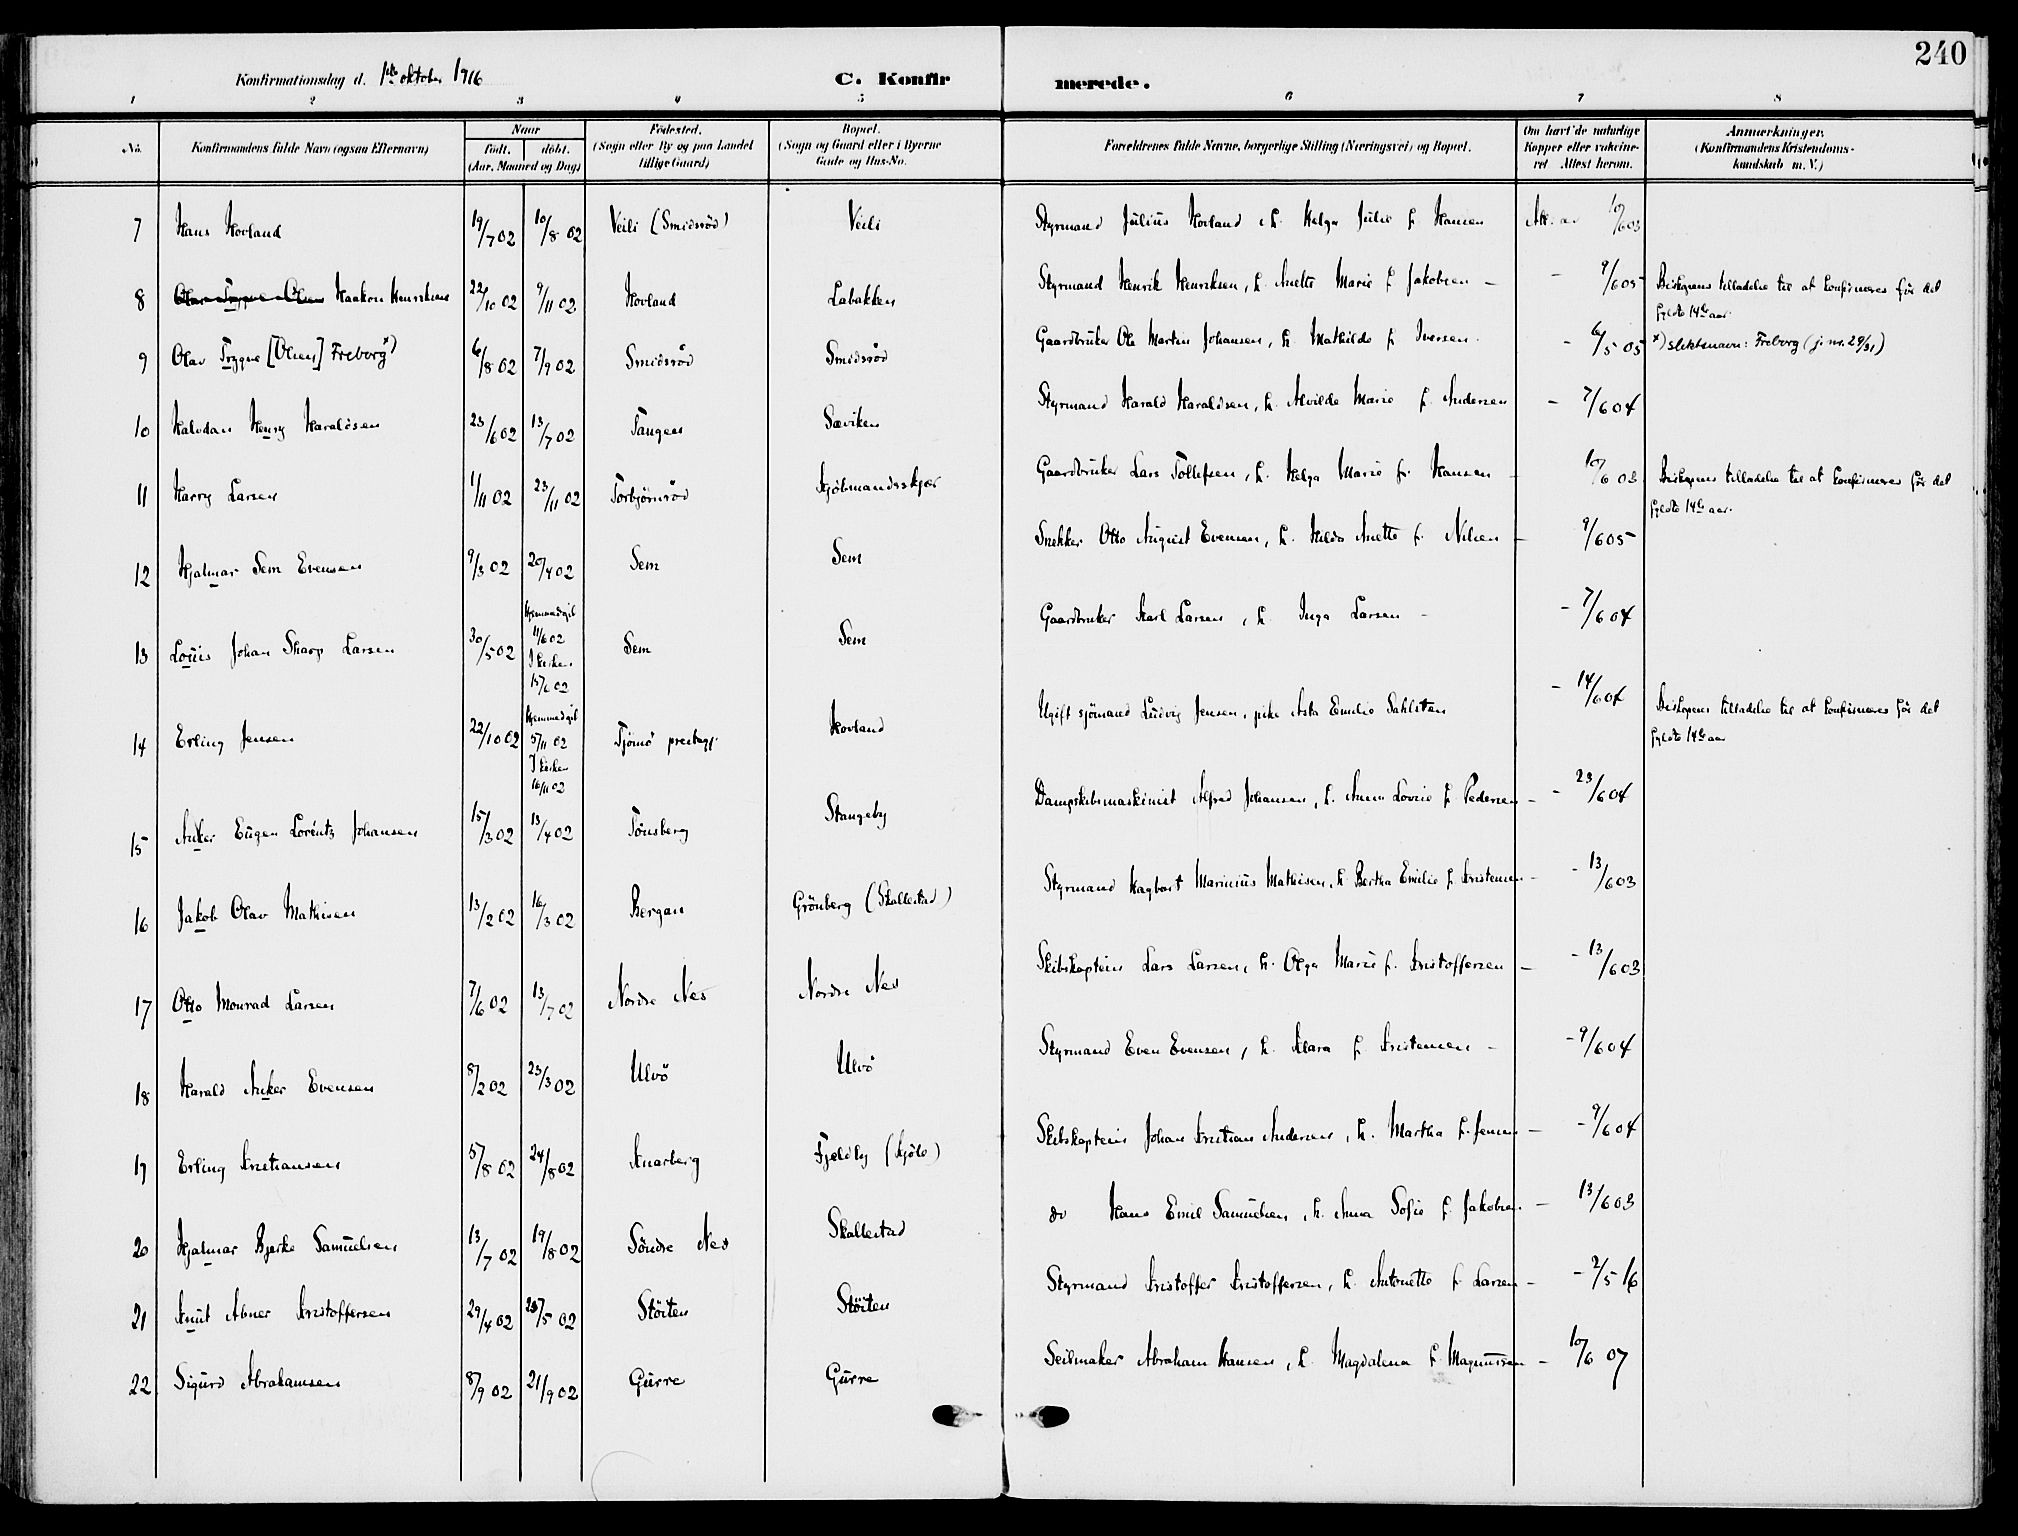 240
Konfirmationsdag d. 1ste oktober 1916 C. Konfirmerede.
1 2 3 4 5 6 7 8
No. Konfirmandens fulde Navn (ogsaa Efternavn) Naar født. døbt. (Aar, Maaned og Dag) Fødested. (Sogn eller By og paa Landet tillige Gaard) Bopæl. (Sogn og Gaard eller i Byerne Gade og Hus-No. Forældrenes fulde Navne, borgerlige Stilling (Næringsvei) og Bopæl. Om havt de naturlige Kopper eller vaccineret Attest herom. Anmærkninger. (Konfirmandens Kristendomskundskab m. V.)
7 Hans Hovland 19/7 02 10/8 02 Veili (Smidsröd) Veili Styrmand Julius Hovland, h. Helga Julie f. Hansen Att. av 10/6 03
8 Olav Trygve Olsen Haakon Henriksens 22/10 02 9/11 02 Hovland Labakken Styrmand Henrik Henriksen, h. Anette Marie f. Jakobsen – – 9/6 05 Biskopens tilladelse til at konfirmeres før det fyldte 14de aar.
9 Olav Trygve [Olsen] Freborg x) 6/8 02 7/9 02 Smidsröd Smidsröd Gaardbruker Ole Martin Johansen, h. Mathilde f. Iversen. – 6/5 05 x) slektsnavn: Freborg (j. nr. 29/31)
10 Halvdan Henry Haraldsen 23/6 02 13/7 02 Tangen Sæviken Styrmand Harald Haraldsen, h. Alvilde Marie f. Andersen – 7/6 04
11 Harry Larsen 1/11 02 23/11 02 Torbjörnröd Kjöbmandsskjær Gaardbruker Lars Tollefsen, h. Helga Marie f. Hansen – 10/6 03 Biskopens tilladelse til at konfirmeres før det fyldte 14de aar.
12 Hjalmar Sem Evensen 9/3 02 20/4 02 Sem Sem Snekker Otto August Evensen, h. Hilda Anette f. Nilsen – 9/6 05
13 Louis Johan Skarp Larsen 30/5 02 Hjemmedøpt 11/6 02 I kirken 15/6 02 Sem Sem Gaardbruker Karl Larsen, h. Inga Larsen – – 7/6 04
14 Erling Jensen 22/10 02 Hjemmedøpt 5/11 02 I kirken 16/11 02 Tjömö prestegj. Hovland Ugift sjömand Ludvig Jensen, pike Asta Emilie Dahlsten – 14/6 04 Biskopens tilladelse til at konfirmeres før det fyldte 14de aar
15 Anker Eugen Lorentz Johansen 15/3 02 13/4 02 Tönsberg Stangeby Dampskibsmaskinist Alfred Johansen, h. Anna Lovise f. Pedersen – – 23/6 04
16 Jakob Olav Mathisen 13/2 02 16/3 02 Bergan Grönberg (Skallestad) Styrmand Hagbart Marinius Mathisen, h. Bertha Emilie f. Kristensen – – 13/6 03
17 Otto Monrad Larsen 7/6 02 13/7 02 Nordre Nes Nordre Nes Skibskaptein Lars Larsen, h. Olga Marie f. Kristoffersen – – 13/6 03
18 Harald Anker Evensen 8/2 02 23/3 02 Ulvö Ulvö Styrmand Even Evensen, h. Klara f. Kristensen – – 9/6 04
19 Erling Kristiansen 5/8 02 24/8 02 Knarberg Fjeldby (Kjöle) Skibskaptein Johan Kristian Andersen, h. Martha f. Jensen – – 9/6 04
20 Hjalmar Bjerke Samuelsen 13/7 02 19/8 02 Söndre Nes Skallestad do Hans Emil Samuelsen, h. Anna Sofie f. Jakobsen – 13/6 03
21 Knut Abner Kristoffersen 29/4 02 25/5 02 Stöiten Stöiten Styrmand Kristoffer Kristoffersen, h. Antonette f. Larsen – – 2/5 16
22 Sigurd Abrahamsen 8/9 02 21/9 02 Gurre Gurre Seilmaker Abraham Hansen, h. Magdalena f. Magnussen – 10/6 07